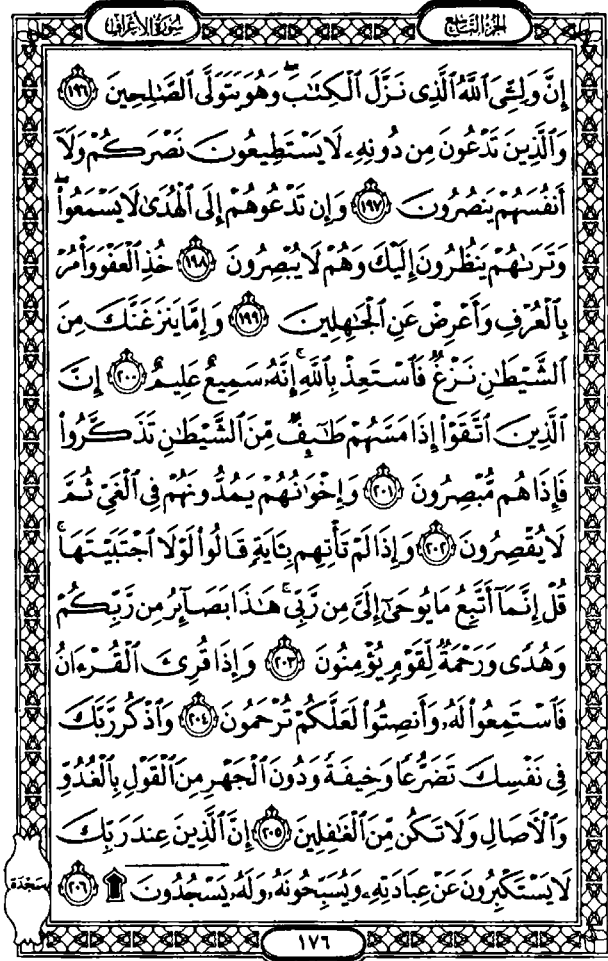 الجزء التاسع
سورة الأعراف
إِنَّ وَلِـِّۧيَ ٱللَّهُ ٱلَّذِى نَزَّلَ ٱلْكِتَٰبَ ۖ وَهُوَ يَتَوَلَّى ٱلصَّٰلِحِينَ ١٩٦
وَٱلَّذِينَ تَدْعُونَ مِن دُونِهِۦ لَا يَسْتَطِيعُونَ نَصْرَكُمْ وَلَآ
أَنفُسَهُمْ يَنصُرُونَ ١٩٧ وَإِن تَدْعُوهُمْ إِلَى ٱلْهُدَىٰ لَا يَسْمَعُوا۟ ۖ
وَتَرَىٰهُمْ يَنظُرُونَ إِلَيْكَ وَهُمْ لَا يُبْصِرُونَ ١٩٨ خُذِ ٱلْعَفْوَ وَأْمُرْ
بِٱلْعُرْفِ وَأَعْرِضْ عَنِ ٱلْجَٰهِلِينَ ١٩٩ وَإِمَّا يَنزَغَنَّكَ مِنَ
ٱلشَّيْطَٰنِ نَزْغٌ فَٱسْتَعِذْ بِٱللَّهِ ۚ إِنَّهُۥ سَمِيعٌ عَلِيمٌ ٢٠٠ إِنَّ
ٱلَّذِينَ ٱتَّقَوْا۟ إِذَا مَسَّهُمْ طَٰٓئِفٌ مِّنَ ٱلشَّيْطَٰنِ تَذَكَّرُوا۟
فَإِذَا هُم مُّبْصِرُونَ ٢٠١ وَإِخْوَٰنُهُمْ يَمُدُّونَهُمْ فِى ٱلْغَىِّ ثُمَّ
لَا يُقْصِرُونَ ٢٠٢ وَإِذَا لَمْ تَأْتِهِم بِـَٔايَةٍ قَالُوا۟ لَوْلَا ٱجْتَبَيْتَهَا ۚ
قُلْ إِنَّمَآ أَتَّبِعُ مَا يُوحَىٰٓ إِلَىَّ مِن رَّبِّى ۚ هَٰذَا بَصَآئِرُ مِن رَّبِّكُمْ
وَهُدًى وَرَحْمَةٌ لِّقَوْمٍ يُؤْمِنُونَ ٢٠٣ وَإِذَا قُرِئَ ٱلْقُرْءَانُ
فَٱسْتَمِعُوا۟ لَهُۥ وَأَنصِتُوا۟ لَعَلَّكُمْ تُرْحَمُونَ ٢٠٤ وَٱذْكُر رَّبَّكَ
فِى نَفْسِكَ تَضَرُّعًا وَخِيفَةً وَدُونَ ٱلْجَهْرِ مِنَ ٱلْقَوْلِ بِٱلْغُدُوِّ
وَٱلْءَاصَالِ وَلَا تَكُن مِّنَ ٱلْغَٰفِلِينَ ٢٠٥ إِنَّ ٱلَّذِينَ عِندَ رَبِّكَ
لَا يَسْتَكْبِرُونَ عَنْ عِبَادَتِهِۦ وَيُسَبِّحُونَهُۥ وَلَهُۥ يَسْجُدُونَ ۩ ٢٠٦
سَجْدَة
١٧٦